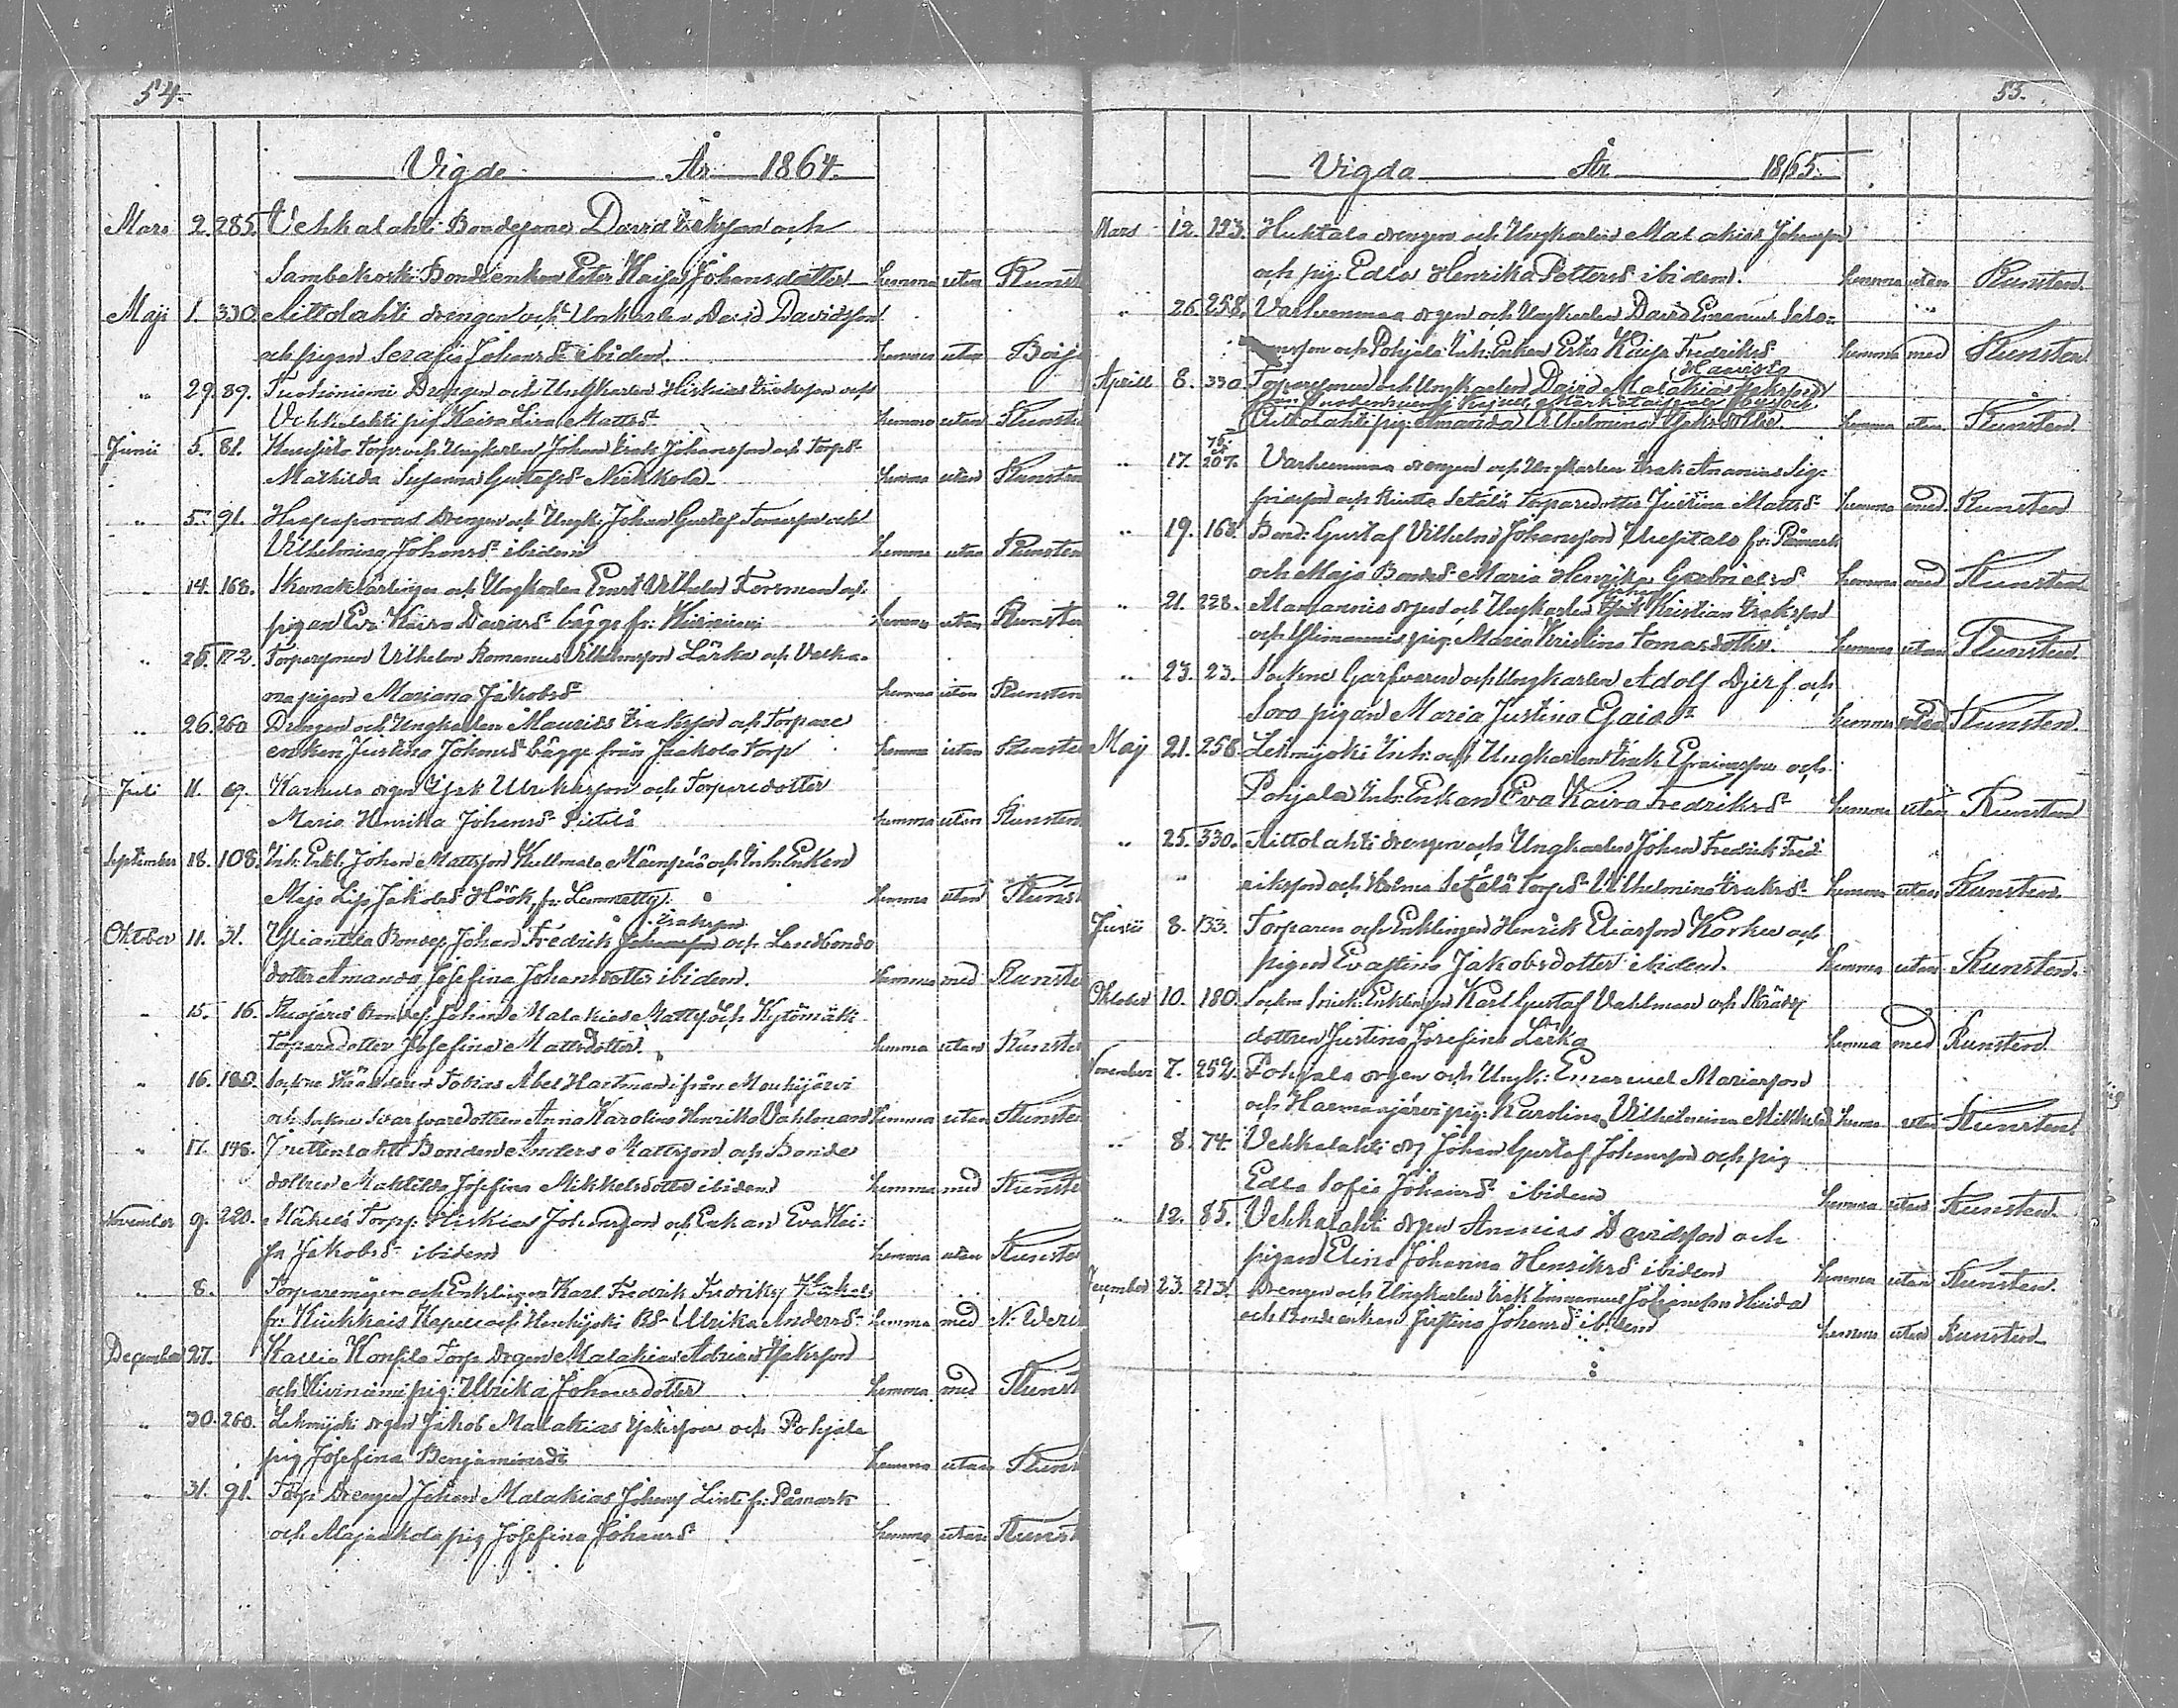 54.
Vigde År 1864.
Mars 2. 285. Vehkalahti Bondesonen David Eriksson och
Sambakoski Bondeenkan Kaisa Johansdotter hemma utan Runst
Maji 1. 330. Aittolahti drengen och Unkarlen David Davidsson
och pigan Serafia Johansdr ibidem hemma utan Boij
" 29. 89. Tuohiniemi Drengen och Ungkarlen Hiskias Eriksson och
Vehkalahti pig Kaisa Lisa Mattsdr hemma utan Runste
Junii 5. 81. Torp. och Ungkarlen Johan Erik Johansson och Torpdr
Mathilda Susanna Gustafsdr Niukkola hemma utan Runsten
" 5. 91. Haapaporras Drengen och Ungk. Johan Gustaf Tomasson och
Vilhelmina Johansdr ibidem hemma utan Runsten
" 14. 168. och Ungkarlen Ernst Vilhelm Forsman och
pigan Eva Kaisa Davidsdr bägge fr: hemma utan Runsten
" 26. 172. Torparsonen Vilhelm Romanus Vilhelmsson Lärka och
pigan Mariana Jakobsdr hemma utan Runsten
" 26. 260 Drengen och Ungkarlen Mauritz Isaksson och Torpare
enkan Justina Johansdr bägge från Jaakola Torp hemma utan Runsten
Juli 11. 69. drgen Isak Ulriksson och Torparedotter
Maria Henrika Johansdr Pietilä hemma utan Runsten
September 18. 108. Inh: Enkl: Johan Mattsson Kullmala och Inh: Enkan
Maja Lisa Jakobsdr Höök, fr: hemma utan Runst
Isaksson
Oktober 11. 31. Yliantila Bondes. Johan Fredrik Johansson och Landbonde
dotter Amanda Josefina Johansdotter ibidem. hemma med Runste
" 15. 16. Bondes. Johan Malakias Matts. och Kytömäki
Torparedotter Josefina Mattsdotter. hemma utan Runste
" 16. 180. Sockne Tobias Abel Hartman ifrån Mouhijärvi
och Sockne Garfvaredottren Anna Karolina Henrika Vahlman hemma utan Runsten
" 17. 148. Bonden Anders Mattsson och Bonde
dottren Mathilda Josefina Mikkelsdotter ibidem hemma med Runste
November 9. 220. Mäkelä Torp: Hiskias Johansson och Enkan Eva Kai:
sa Jakobsdr ibidem hemma utan Runste
" 8. Torparemågen och Enklingen Karl Fredrik Fredriks.
fr: Kiikkais Kapell och Bdr Ulrika Andersdr hemma med N.
December 27. Torp drgen Malakias Adrian Isaksson
och Kiviniemi pig: Ulrika Johansdotter hemma med Runst
" 30. 260. Lehmijoki drgen Jakob Malakias Isaksson och Pohjala
pig Josefina Benjaminsdr hemma utan Runst
" 31. 91. Torp Drengen Johan Malakias Johans. fr: Påmark
och pig Josefina Johansdr hemma utan Runst
55.
Vigda År 1865.
Mars 12. 123. Huhtala drengen och Ungkarlen Malakias Johansson
och pig: Edla Henrika Pettersdr ibidem. hemma utan Runsten
" 26. 258. Varhenmaa drgen och Ungkarlen David Emanuel Salo:
och Pohjala Inh: Enkan Kaisa Fredriksdr hemma med Runsten
Aprill 8. 330. Torparsonen och Ungkarlen David Malakias Jakobsson
Aittolahti pig: Amanda Vilhelmina Isaksdotter. hemma utan Runsten
76. et
" 17. 207. Varhenmaa drengen och Ungkarlen Isak Ananias Sig:
fridsson och Setälä Torparedotter Justina Mattsdr hemma med Runsten
" 19. 168. Bond: Gustaf Vilhelm Johansson Uusitalo fr: Påmark
och Maja Bondedr Maria Henrika Gabrielsdr hemma med Runsten
Johan
" 21. 228. drgen och Ungkarlen Kristian Isaksson
och pig: Maria Kristina Tomasdotter. hemma utan Runsten
" 23. 23. Sockne Garfvaren och Ungkarlen Adolf Djerf och
Soro pigan Maria Justina Esaiasdr hemma Runsten.
Maj 21. 258. Lehmijoki Inh: och Ungkarlen Isak Efraimsson och
Pohjala Inh: Enkan Eva Kaisa Fredriksdr hemma utan Runsten
" 25. 330. Aittolahti drengen och Ungkarlen Johan Fredrik Fred
riksson och Setälä Torpdr Vilhelmina Isaksdr hemma utan Runsten
Junii 8. 133. Torparen och Enklingen Henrik Eliasson Korkee och
pigan Evastina Jakobsdotter ibidem. hemma utan Runsten.
Oktober 10. 180. Enklingen Karl Gustaf Vahlman och
dottren Justina Josefina Lärka hemma med Runsten.
November 7. 252. Pohjala drgen och Ungk: Emanuel Mariasson
och Harmaajärvi pig: Karolina Vilhelmina Mikkelsdr hemma utan Runsten.
" 8. 74. Vehkalahti drg Johan Gustaf Johansson och pig
Edla Sofia Johansdr ibidem hemma utan Runsten.
" 12. 85. Vehkalahti drgen Ananias Davidsson och
pigan Elina Johanna Henriksdr ibidem hemma utan Runsten.
December 23. 213. Drengen och Ungkarlen Isak Emmanuel Johansson
och Bonde enkan Justina Johansdr ibidem hemma utan Runsten